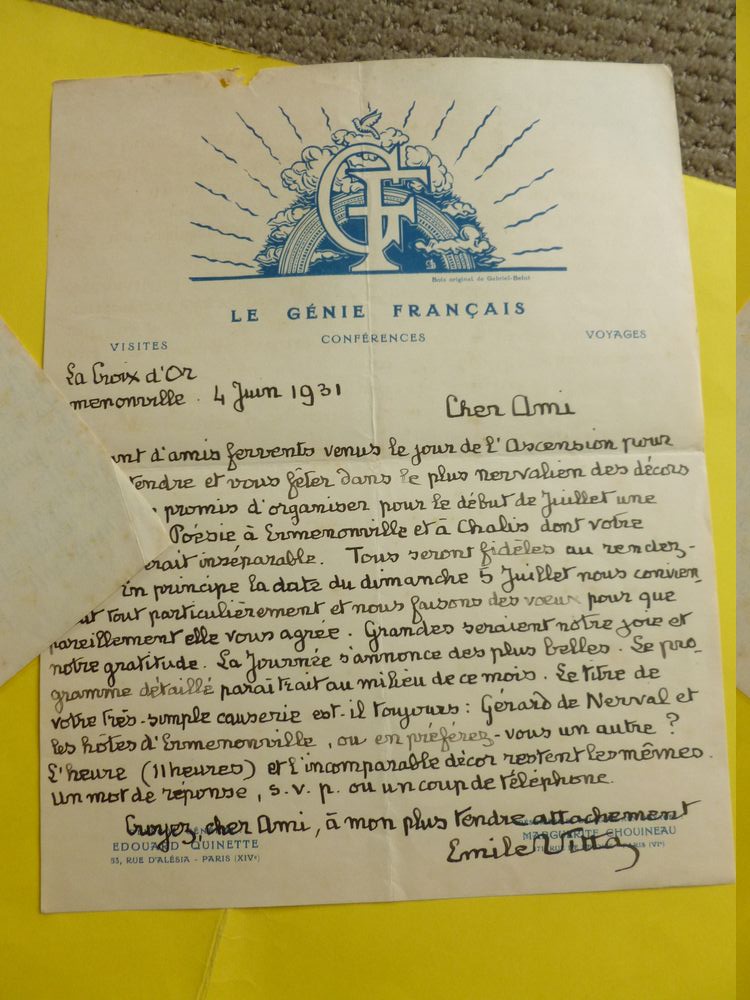 GF
Bois original de Gabriel-Belot
LE GÉNIE FRANÇAIS
VISITES CONFÉRENCES VOYAGES
La Croix d'Or
menonville. 4 Juin 1931
Cher Ami
ant d'amis fervents venus le jour de l'Ascension pour
tendre et vous fêter dans le plus nervalien des décors
promis d'organiser pour le début de Juillet une
Poésie à Ermenonville et à Chalis dont votre
erait inséparable. Tous seront fidèles au rendez-
In principe la date du dimanche 5 Juillet nous convien_
tout particulièrement et nous faisons des vœux pour que
pareillement elle vous agrée. Grandes seraient notre joie et
notre gratitude. La Journée s'annonce des plus belles. Le pro_
gramme détaillé paraîtrait au milieu de ce mois. Le titre de
votre très-simple causerie est-il toujours : Gérard de Nerval et
les hôtes d'Ermenonville, ou en préférez-vous un autre ?
L'heure (11 heures) et l'incomparable décor restent les mêmes.
Un mot de réponse, s.v.p. ou un coup de téléphone.
Croyez, cher Ami, à mon plus tendre attachement
Emile Vitta
EDOUARD QUINETTE
83, RUE D'ALÉSIA - PARIS (XIVe)
MARGUERITE CHOUINEAU
PARIS (VIe)